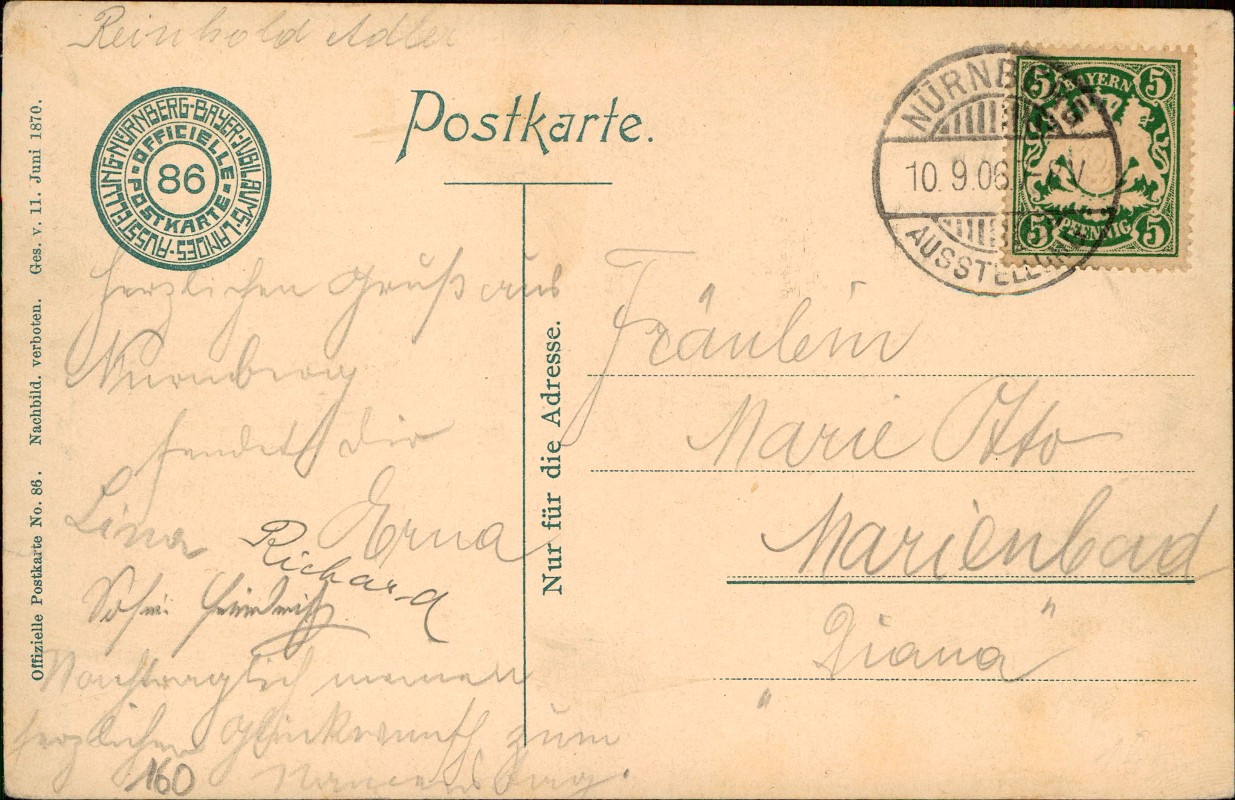 Reinhold Adler
NÜRNBERG-BAYER-JUBILÄUMS-LANDES-AUSSTELLUNG
OFFICIELLE POSTKARTE
86
Postkarte.
NÜRNB
10. 9. 06.
AUSSTELLUN
5 BAYERN 5
5 PFENNIG 5
Offizielle Postkarte No. 86. Nachbild. verboten. Ges. v. 11. Juni 1870.
Herzlichen Gruß aus
Nürnberg
sendet Dir
Lina Erna
Richard
Nachträglich meinen
herzlichen Glückwunsch zum
Namenstag.
160
Nur für die Adresse.
Fräulein
Marie Otto
Marienbad
„Diana"